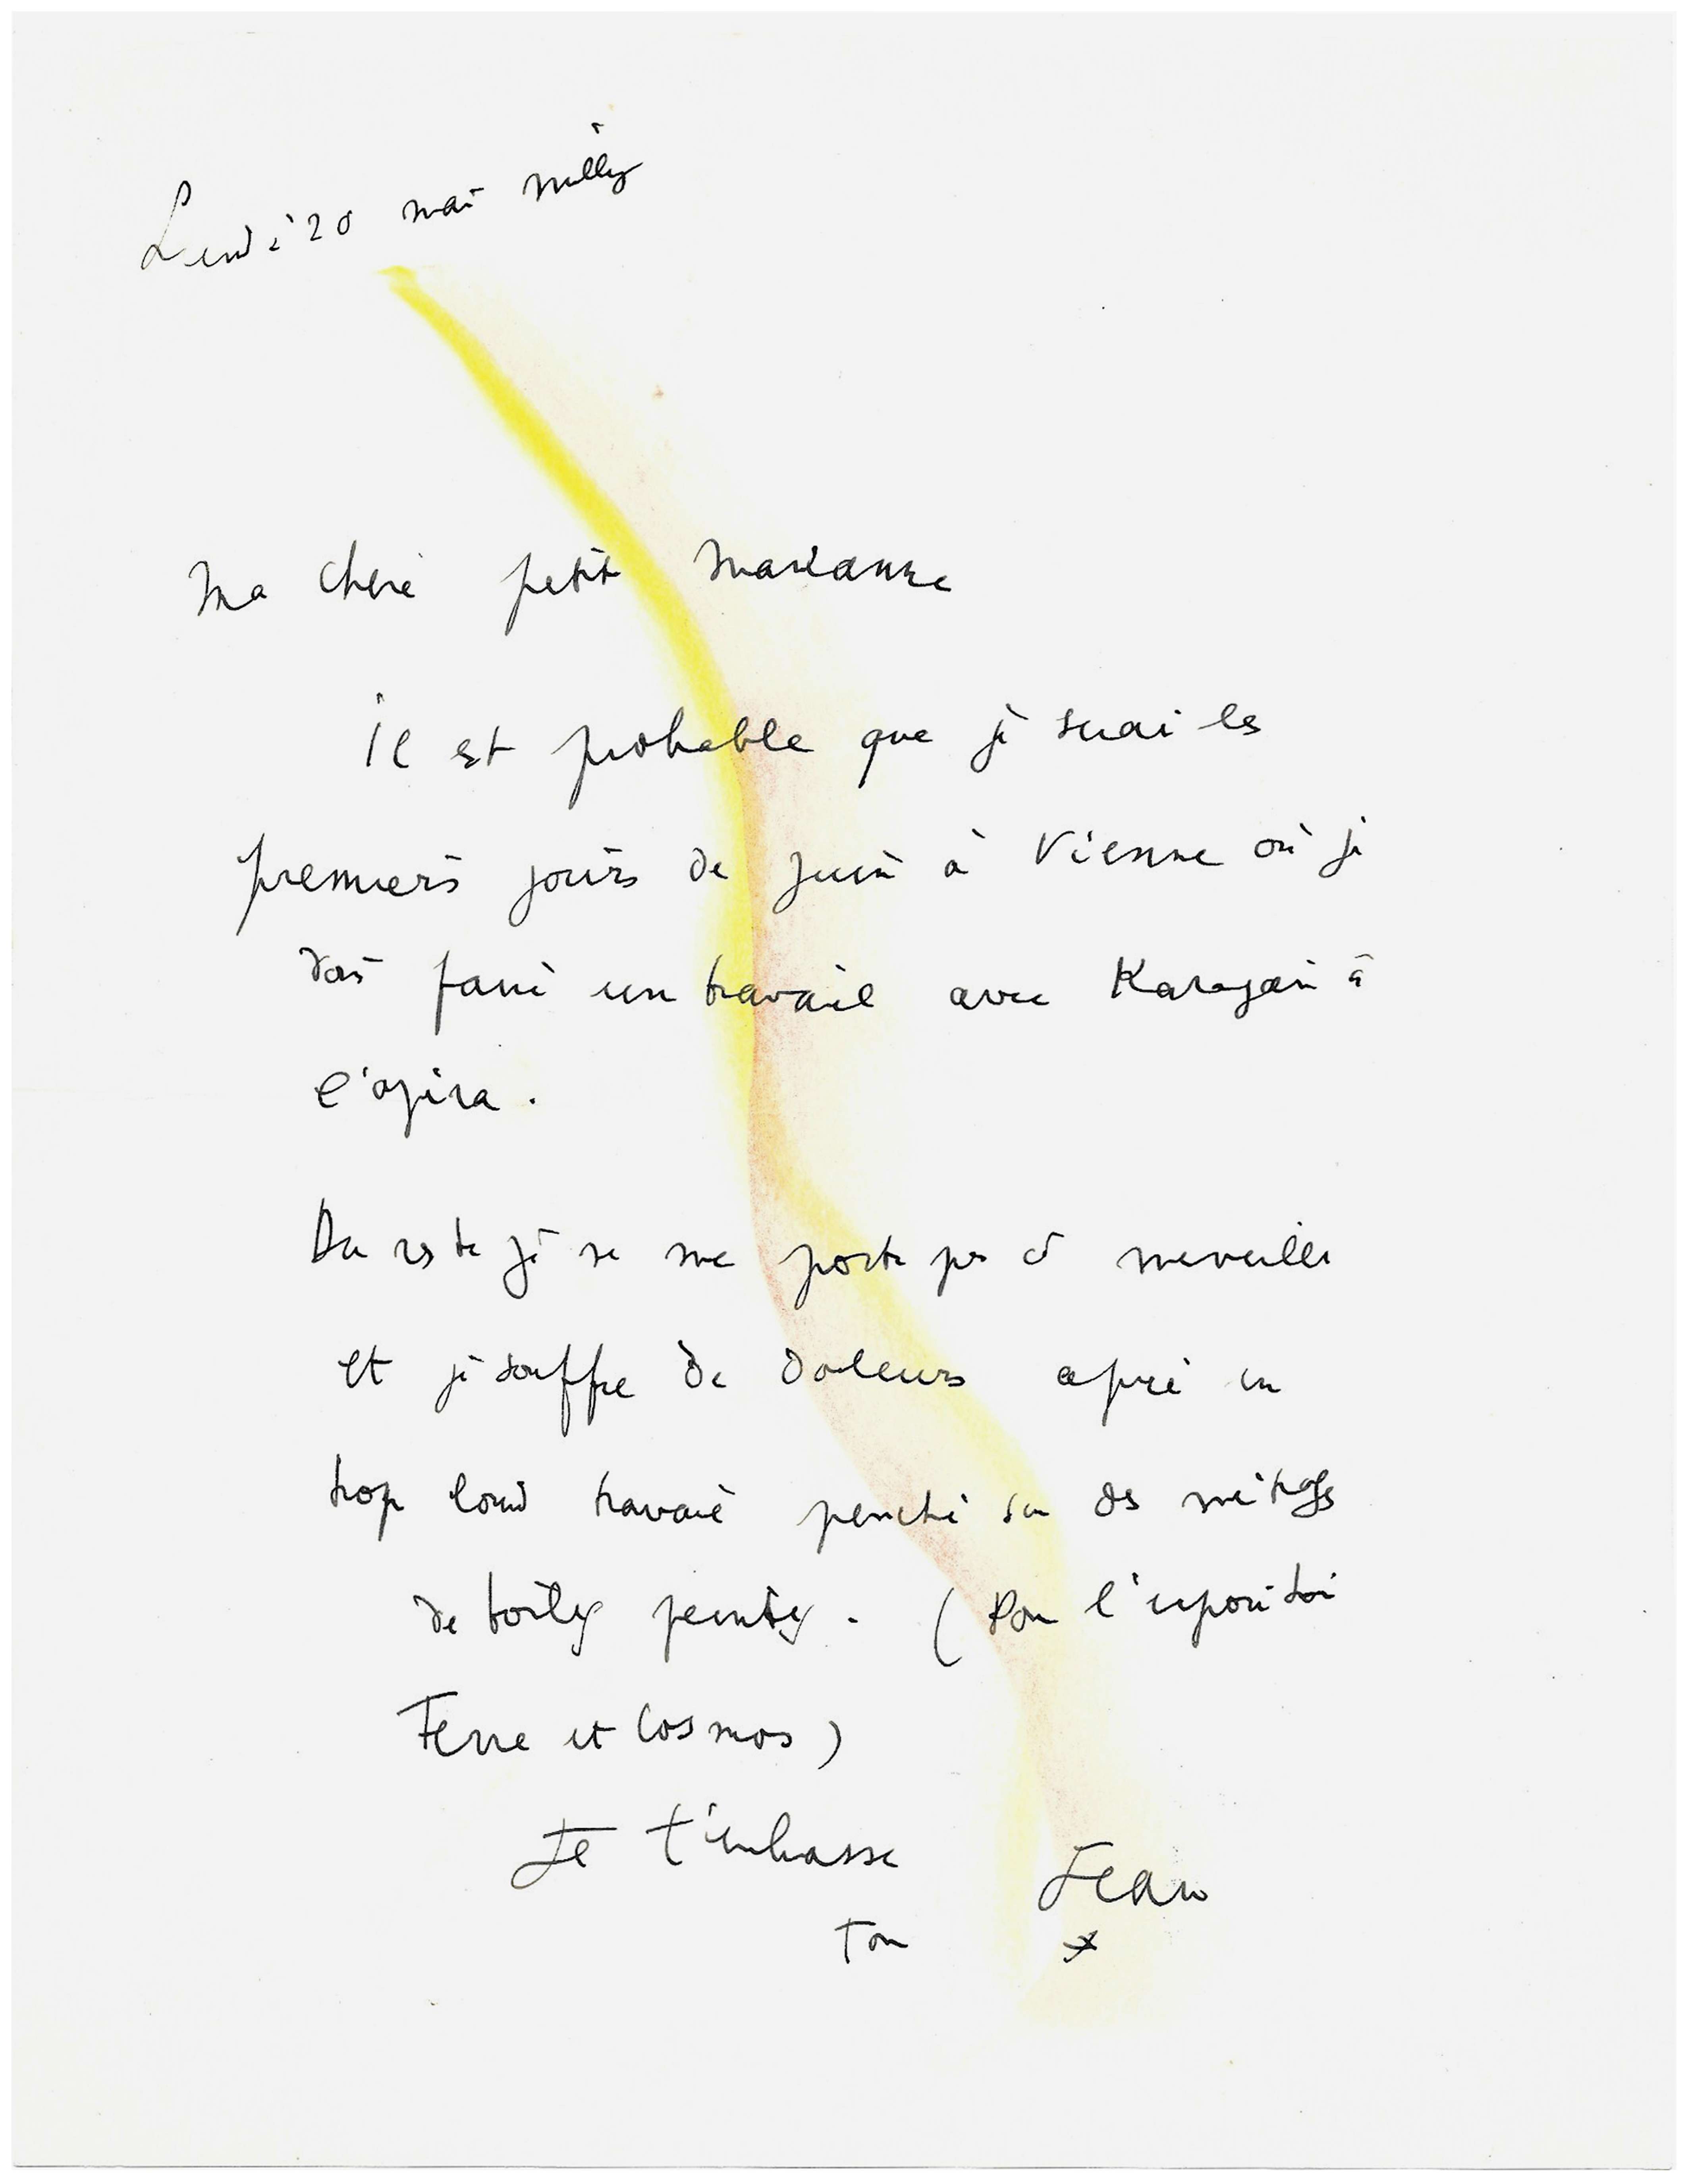 Lundi 20 mai Milly
Ma chère petite Marianne
Il est probable que je serai les
premiers jours de Juin à Vienne où je
dois faire un travail avec Karajan à
l'opéra.
Du reste je ne me porte pas à merveille
et je souffre de douleurs après un
trop lourd travail penché sur des métrages
de toiles peintes. (Pour l'exposition
Terre et Cosmos)
Je t'embrasse
Ton Jean